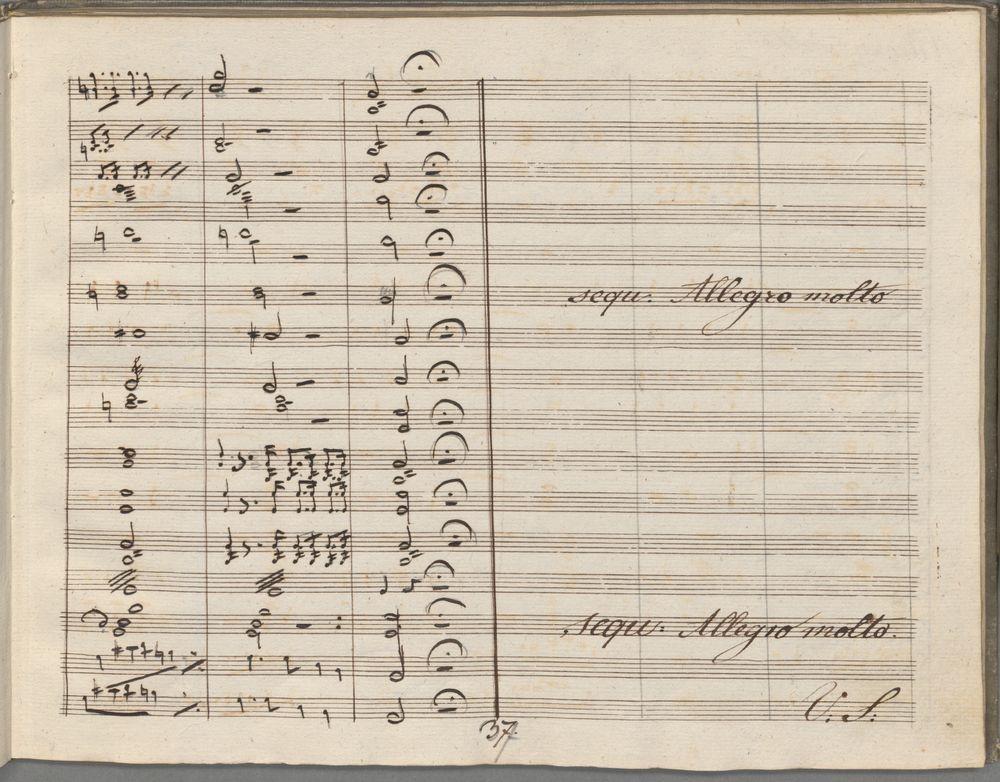 sequ: Allegro molto
sequ: Allegro molto.
V: S:
37